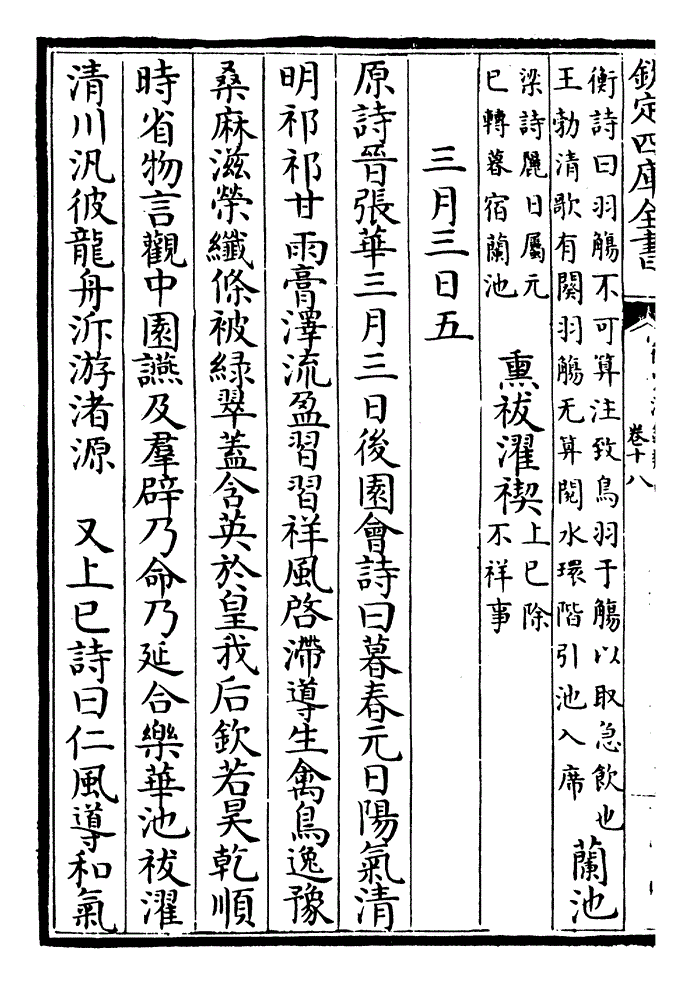 欽定四庫全書
卷十八
衡詩曰羽觴不可算注致鳥羽于觴以取急飲也
王勃清歌有闋羽觴无算閱水環階引池入席
蘭池
梁詩麗日屬元
巳轉暮宿蘭池
熏祓濯禊
上巳除
不祥事
三月三日五
原詩晉張華三月三日後園會詩曰暮春元日陽氣清
明祁祁甘雨膏澤流盈習習祥風啓滯導生禽鳥逸豫
桑麻滋榮纖條被綠翠蓋含英於皇我后欽若昊乾順
時省物言觀中園讌及羣辟乃命乃延合樂華池祓濯
清川汎彼龍舟泝游渚源　又上巳詩曰仁風導和氣